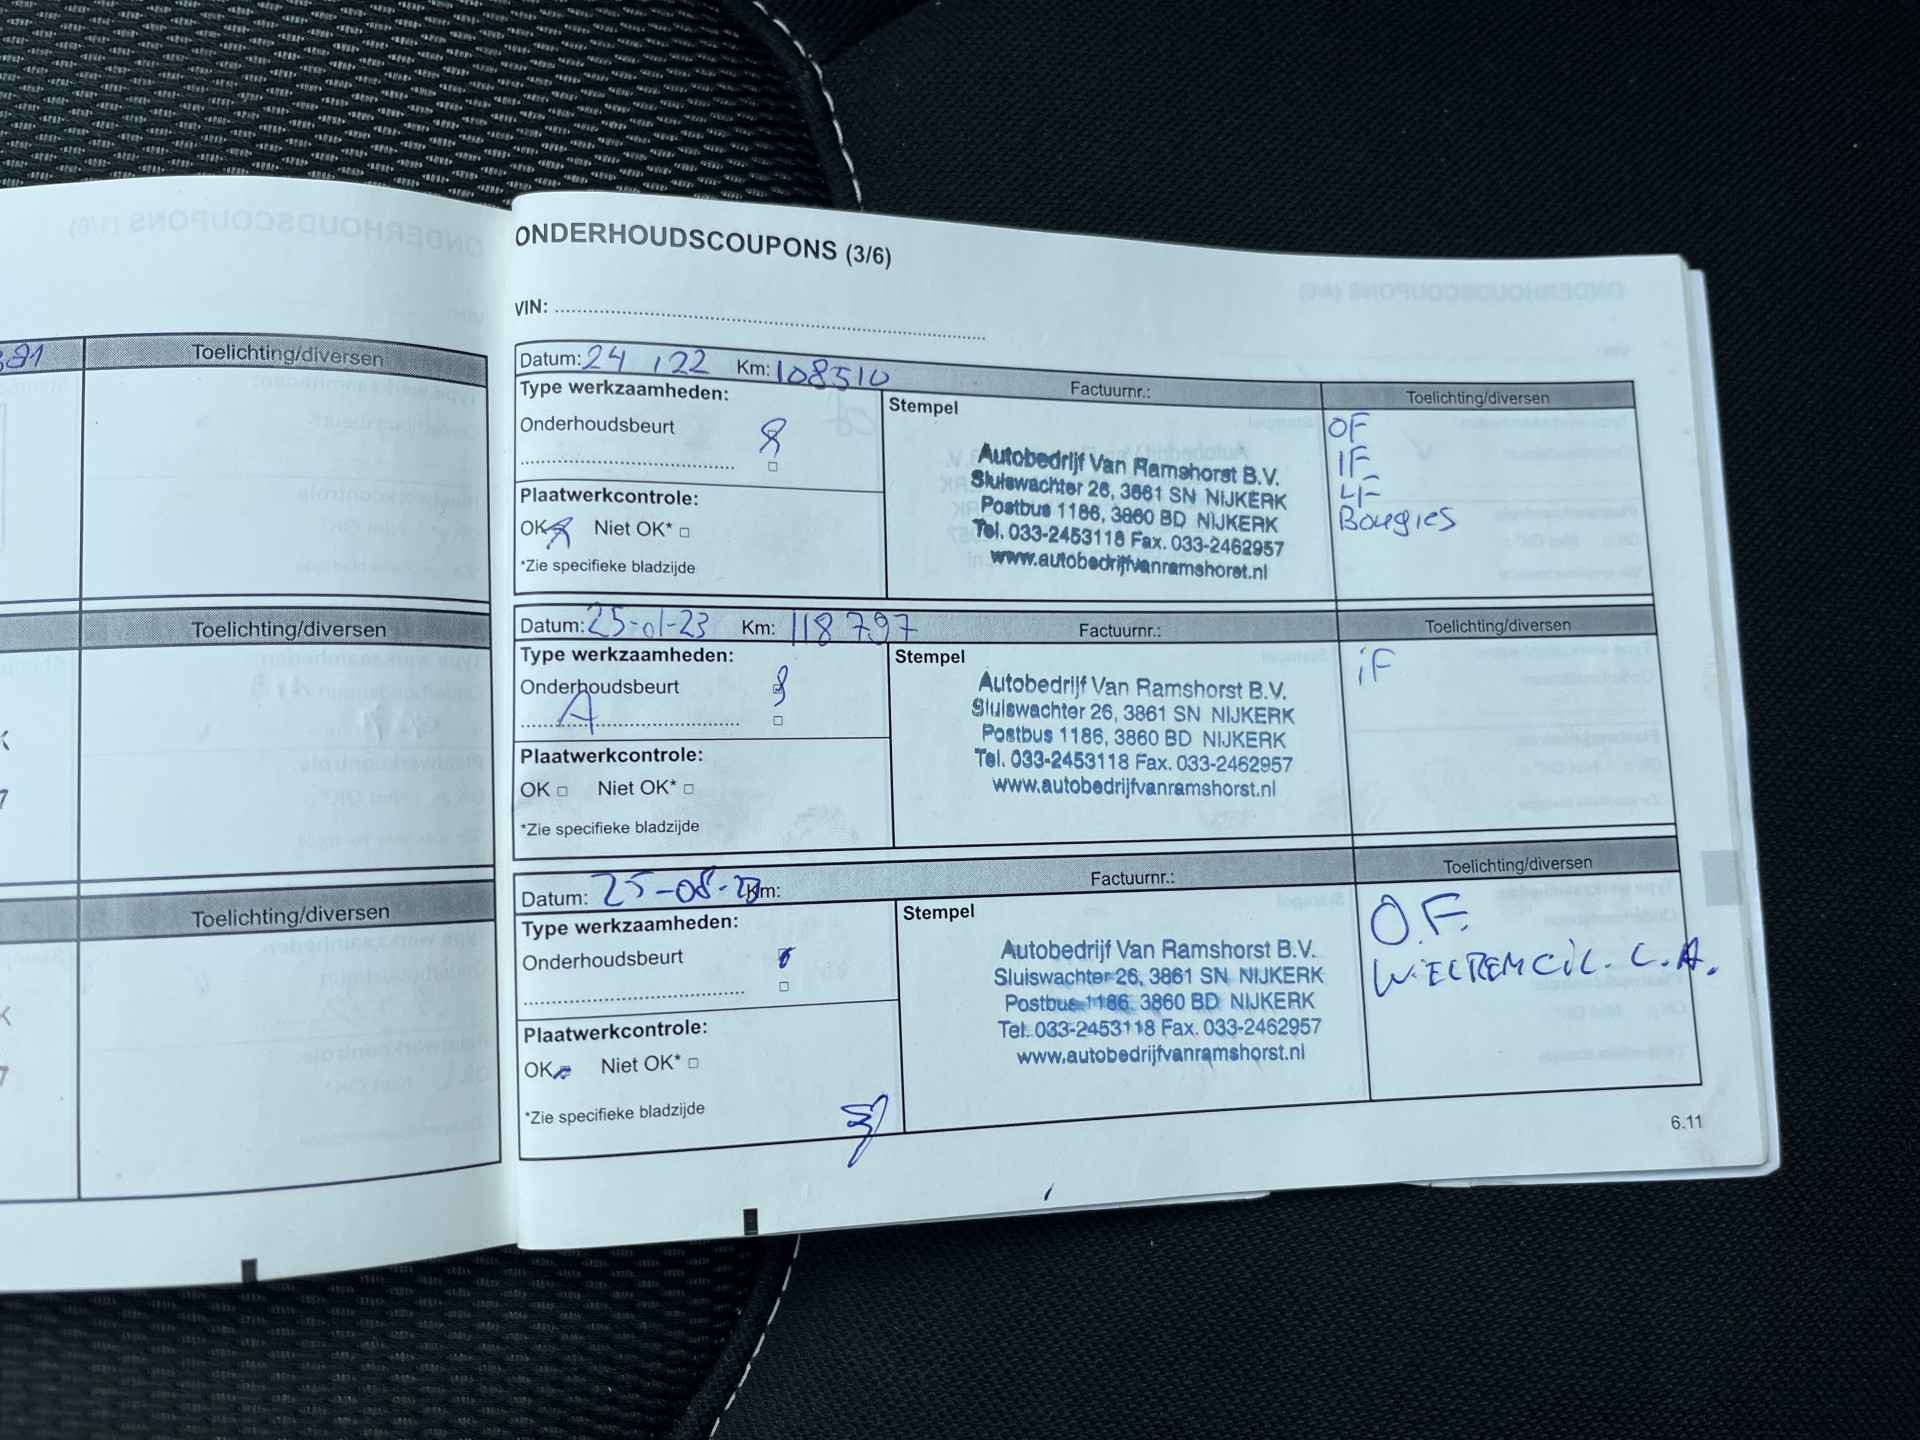 Toelichting/diversen
Toelichting/diversen
Toelichting/diversen
ONDERHOUDSCOUPONS (3/6)
VIN:
Datum: 24 122 Km: 108510 Factuurnr.: Toelichting/diversen
Type werkzaamheden: Stempel
Onderhoudsbeurt
Plaatwerkcontrole:
OK Niet OK*
*Zie specifieke bladzijde
Autobedrijf Van Ramshorst B.V.
Sluiswachter 26, 3861 SN NIJKERK
Postbus 1186, 3860 BD NIJKERK
Tel. 033-2453118 Fax. 033-2462957
www.autobedrijfvanramshorst.nl
OF
IF
LF
Bougies
Datum: 25-01-23 Km: 118797 Factuurnr.: Toelichting/diversen
Type werkzaamheden: Stempel
Onderhoudsbeurt
A
Plaatwerkcontrole:
OK Niet OK*
*Zie specifieke bladzijde
Autobedrijf Van Ramshorst B.V.
Sluiswachter 26, 3861 SN NIJKERK
Postbus 1186, 3860 BD NIJKERK
Tel. 033-2453118 Fax. 033-2462957
www.autobedrijfvanramshorst.nl
iF
Datum: 25-08-23 Km: Factuurnr.: Toelichting/diversen
Type werkzaamheden: Stempel
Onderhoudsbeurt
Plaatwerkcontrole:
OK Niet OK*
*Zie specifieke bladzijde
Autobedrijf Van Ramshorst B.V.
Sluiswachter 26, 3861 SN NIJKERK
Postbus 1186, 3860 BD NIJKERK
Tel. 033-2453118 Fax. 033-2462957
www.autobedrijfvanramshorst.nl
O.F.
WIELREMCIL. L.A.
6.11